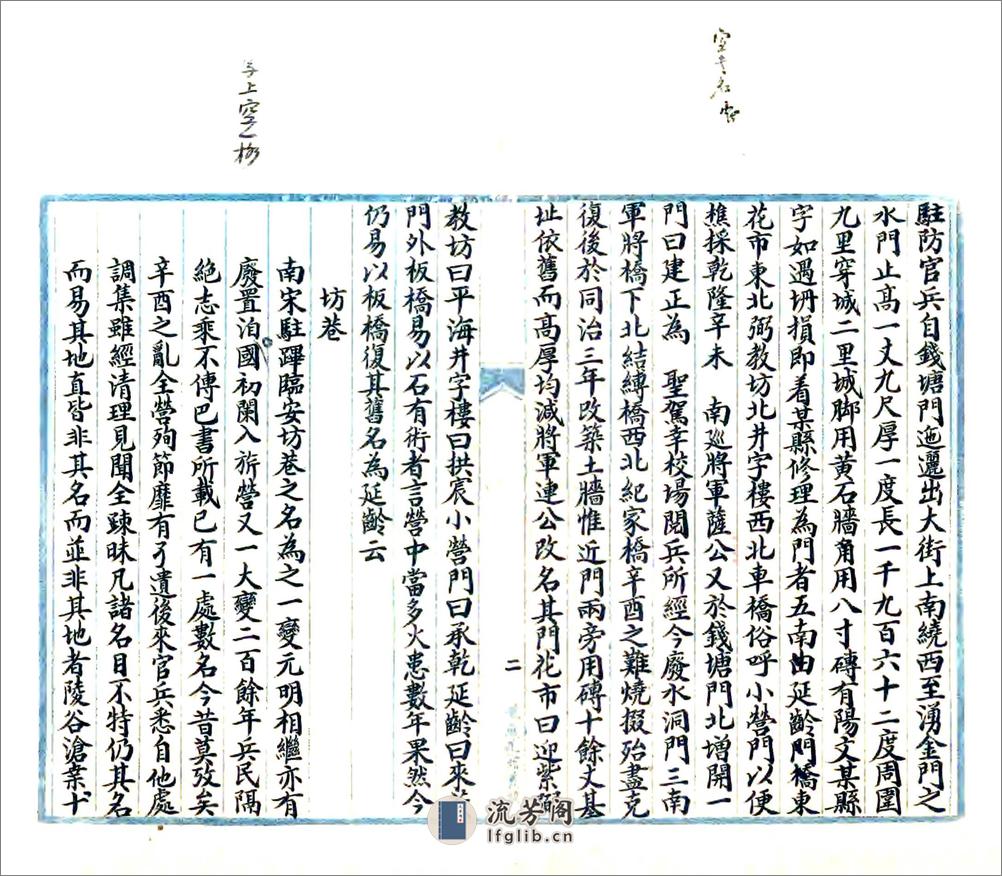 駐防官兵自錢塘門迤邐出大街上南繞西至湧金門之
水門止高一丈九尺厚一度長一千九百六十二度周圍
九里穿城二里城脚用黄石牆角用八寸磚有陽文某縣
字如遇坍損即着某縣修理為門者五南曲延齡門橋東
花市東北弼教坊北井字樓西北車橋俗呼小營門以便
樵採乾隆辛未　南巡將軍薩公又於錢塘門北增開一
門曰建正為　聖駕幸校場閱兵所經今廢水洞門三南
軍將橋下北結縛橋西北紀家橋辛酉之難燒掇殆盡克
復後於同治三年改築土牆惟近門兩旁用磚十餘丈基
址依舊而高厚均減將軍連公改名其門花市曰迎紫
二
教坊曰平海井字樓曰拱宸小營門曰承乾延齡曰來
門外板橋易以石有術者言營中當多火患數年果然今
仍易以板橋復其舊名為延齡云
坊巷
南宋駐蹕臨安坊巷之名為之一變元明相繼亦有
廢置洎國初闌入旂營又一大變二百餘年兵民隔
絕志乘不傳巴書所載已有一處數名今昔莫攷矣
辛酉之亂全營殉節靡有孑遺後來官兵悉自他處
調集雖經清理見聞全踈昧凡諸名目不特仍其名
而易其地直皆非其名而並非其地者陵谷滄桑
上空一格
流芳閣
lfglib.cn